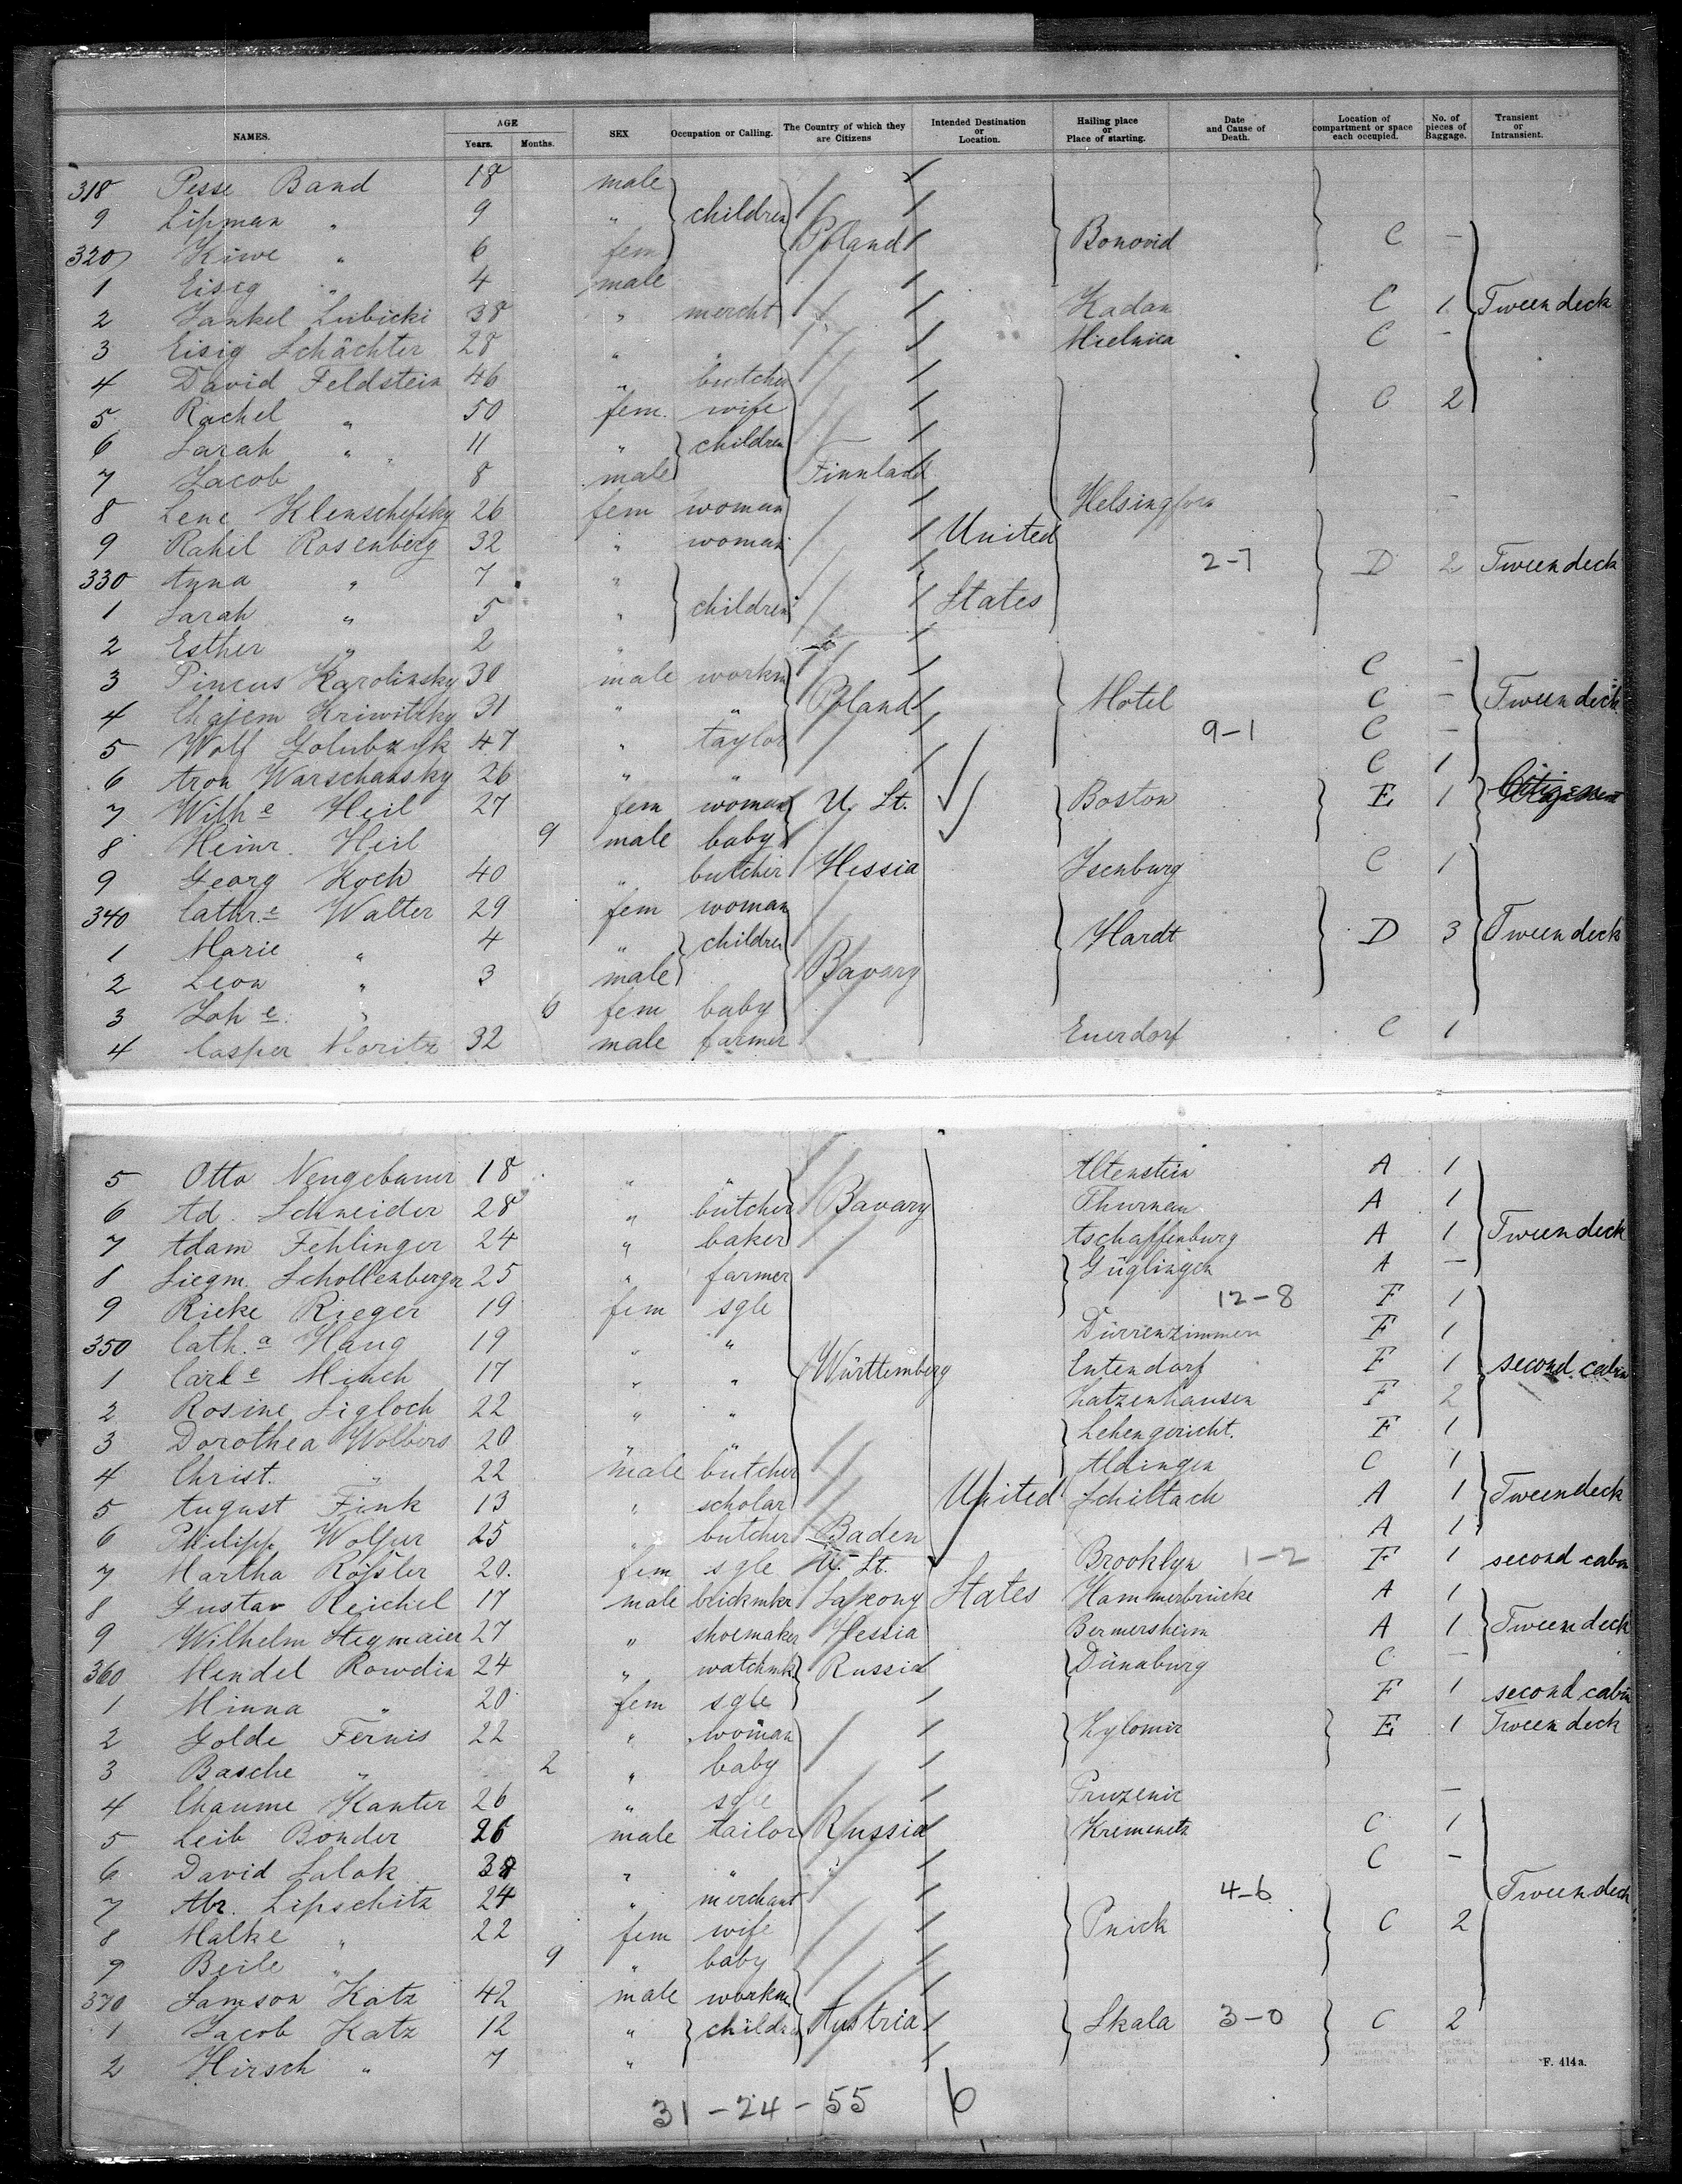 NAMES. AGE Years. Months. SEX Occupation or Calling. The Country of which they are Citizens Intended Destination or Location. Hailing place or Place of starting. Date and Cause of Death. Location of compartment or space each occupied. No. of pieces of Baggage. Transient or Intransient.
318 Pesse Band 18 male
9 Lipman " 9 " children
320 Kiwe " 6 fem Poland Bonovid C -
1 Eisig " 4 male
2 Jankel Lubicki 38 " mercht Kadan C 1 Tween deck
3 Eisig Schächter 28 " " Mielnica C -
4 David Feldstein 46 " butcher
5 Rachel " 50 fem. wife C 2
6 Sarah " 11 " children
7 Jacob 8 male Finnland
8 Lene Klenschefsky 26 fem woman Helsingfors -
9 Rahil Rosenberg 32 " woman United
330 Anna " 7 " 2-7 D 2 Tween deck
1 Sarah " 5 " children States
2 Esther " 2 "
3 Pincus Karolinsky 30 male workm C -
4 Chajem Kriwitzky 31 " " Poland Motel C - Tween deck
5 Wolf Golubzyk 47 " taylor 9-1 C -
6 Aron Warschawsky 26 " " C 1
7 Wilhe Heil 27 fem woman U. St. Boston E 1 Citizens
8 Heinr. Heil 9 male baby
9 Georg Koch 40 " butcher Hessia Isenburg C 1
340 Cathr.e Walter 29 fem woman
1 Marie " 4 " children Hardt D 3 Tween deck
2 Leon " 3 male Bavary
3 Johe. " 6 fem baby
4 Casper Moritz 32 male farmer Euerdorf C 1
5 Otto Neugebauer 18 " " Altenstein A 1
6 Ad. Schneider 28 " butcher Bavary Thurnau A 1
7 Adam Fehlinger 24 " baker Aschaffenburg A 1 Tween deck
8 Siegm. Schollenberger 25 " farmer Güglingen A -
9 Rieke Rieger 19 fem sgle 12-8 F 1
350 Cath.a Haug 19 " " Dürrenzimmern F 1
1 Carle Minch 17 " " Württemberg Entendorf F 1 second cabin
2 Rosine Sigloch 22 " " Katzenhausen F 2
3 Dorothea Wolbers 20 " " Lehengericht. F 1
4 Christ. " 22 male butcher Aldingen C 1
5 August Fink 13 " scholar United Schiltach A 1 Tween deck
6 Philipp Wolfur 25 " butcher Baden A 1
7 Martha Rößler 20. fem sgle U. St. Brooklyn 1-2 F 1 second cabin
8 Gustav Reichel 17 male brickmkr Saxony States Hammerbrücke A 1
9 Wilhelm Stegmaier 27 " shoemaker Hessia Bermersheim A 1 Tween deck
360 Mendel Rowdin 24 " watchmk Russia Dünaburg C -
1 Minna " 20 fem sgle F 1 second cabin
2 Golde Fernis 22 " woman Zylomir E 1 Tween deck
3 Basche " 2 " baby
4 Chaume Kanter 26 " sgle Pruzenic -
5 Leib Bonder 26 male tailor Russia Kremenetz C 1
6 David Salak 38 " " " C -
7 Abr. Lipschitz 24 " merchant 4-6 Tween deck
8 Malke " 22 fem wife Pnick C 2
9 Beile " 9 " baby
370 Samson Katz 42 male workm
1 Jacob Katz 12 " children Austria Skala 3-0 C 2
2 Hirsch " 7 "
F. 414a.
31 - 24 - 55 6